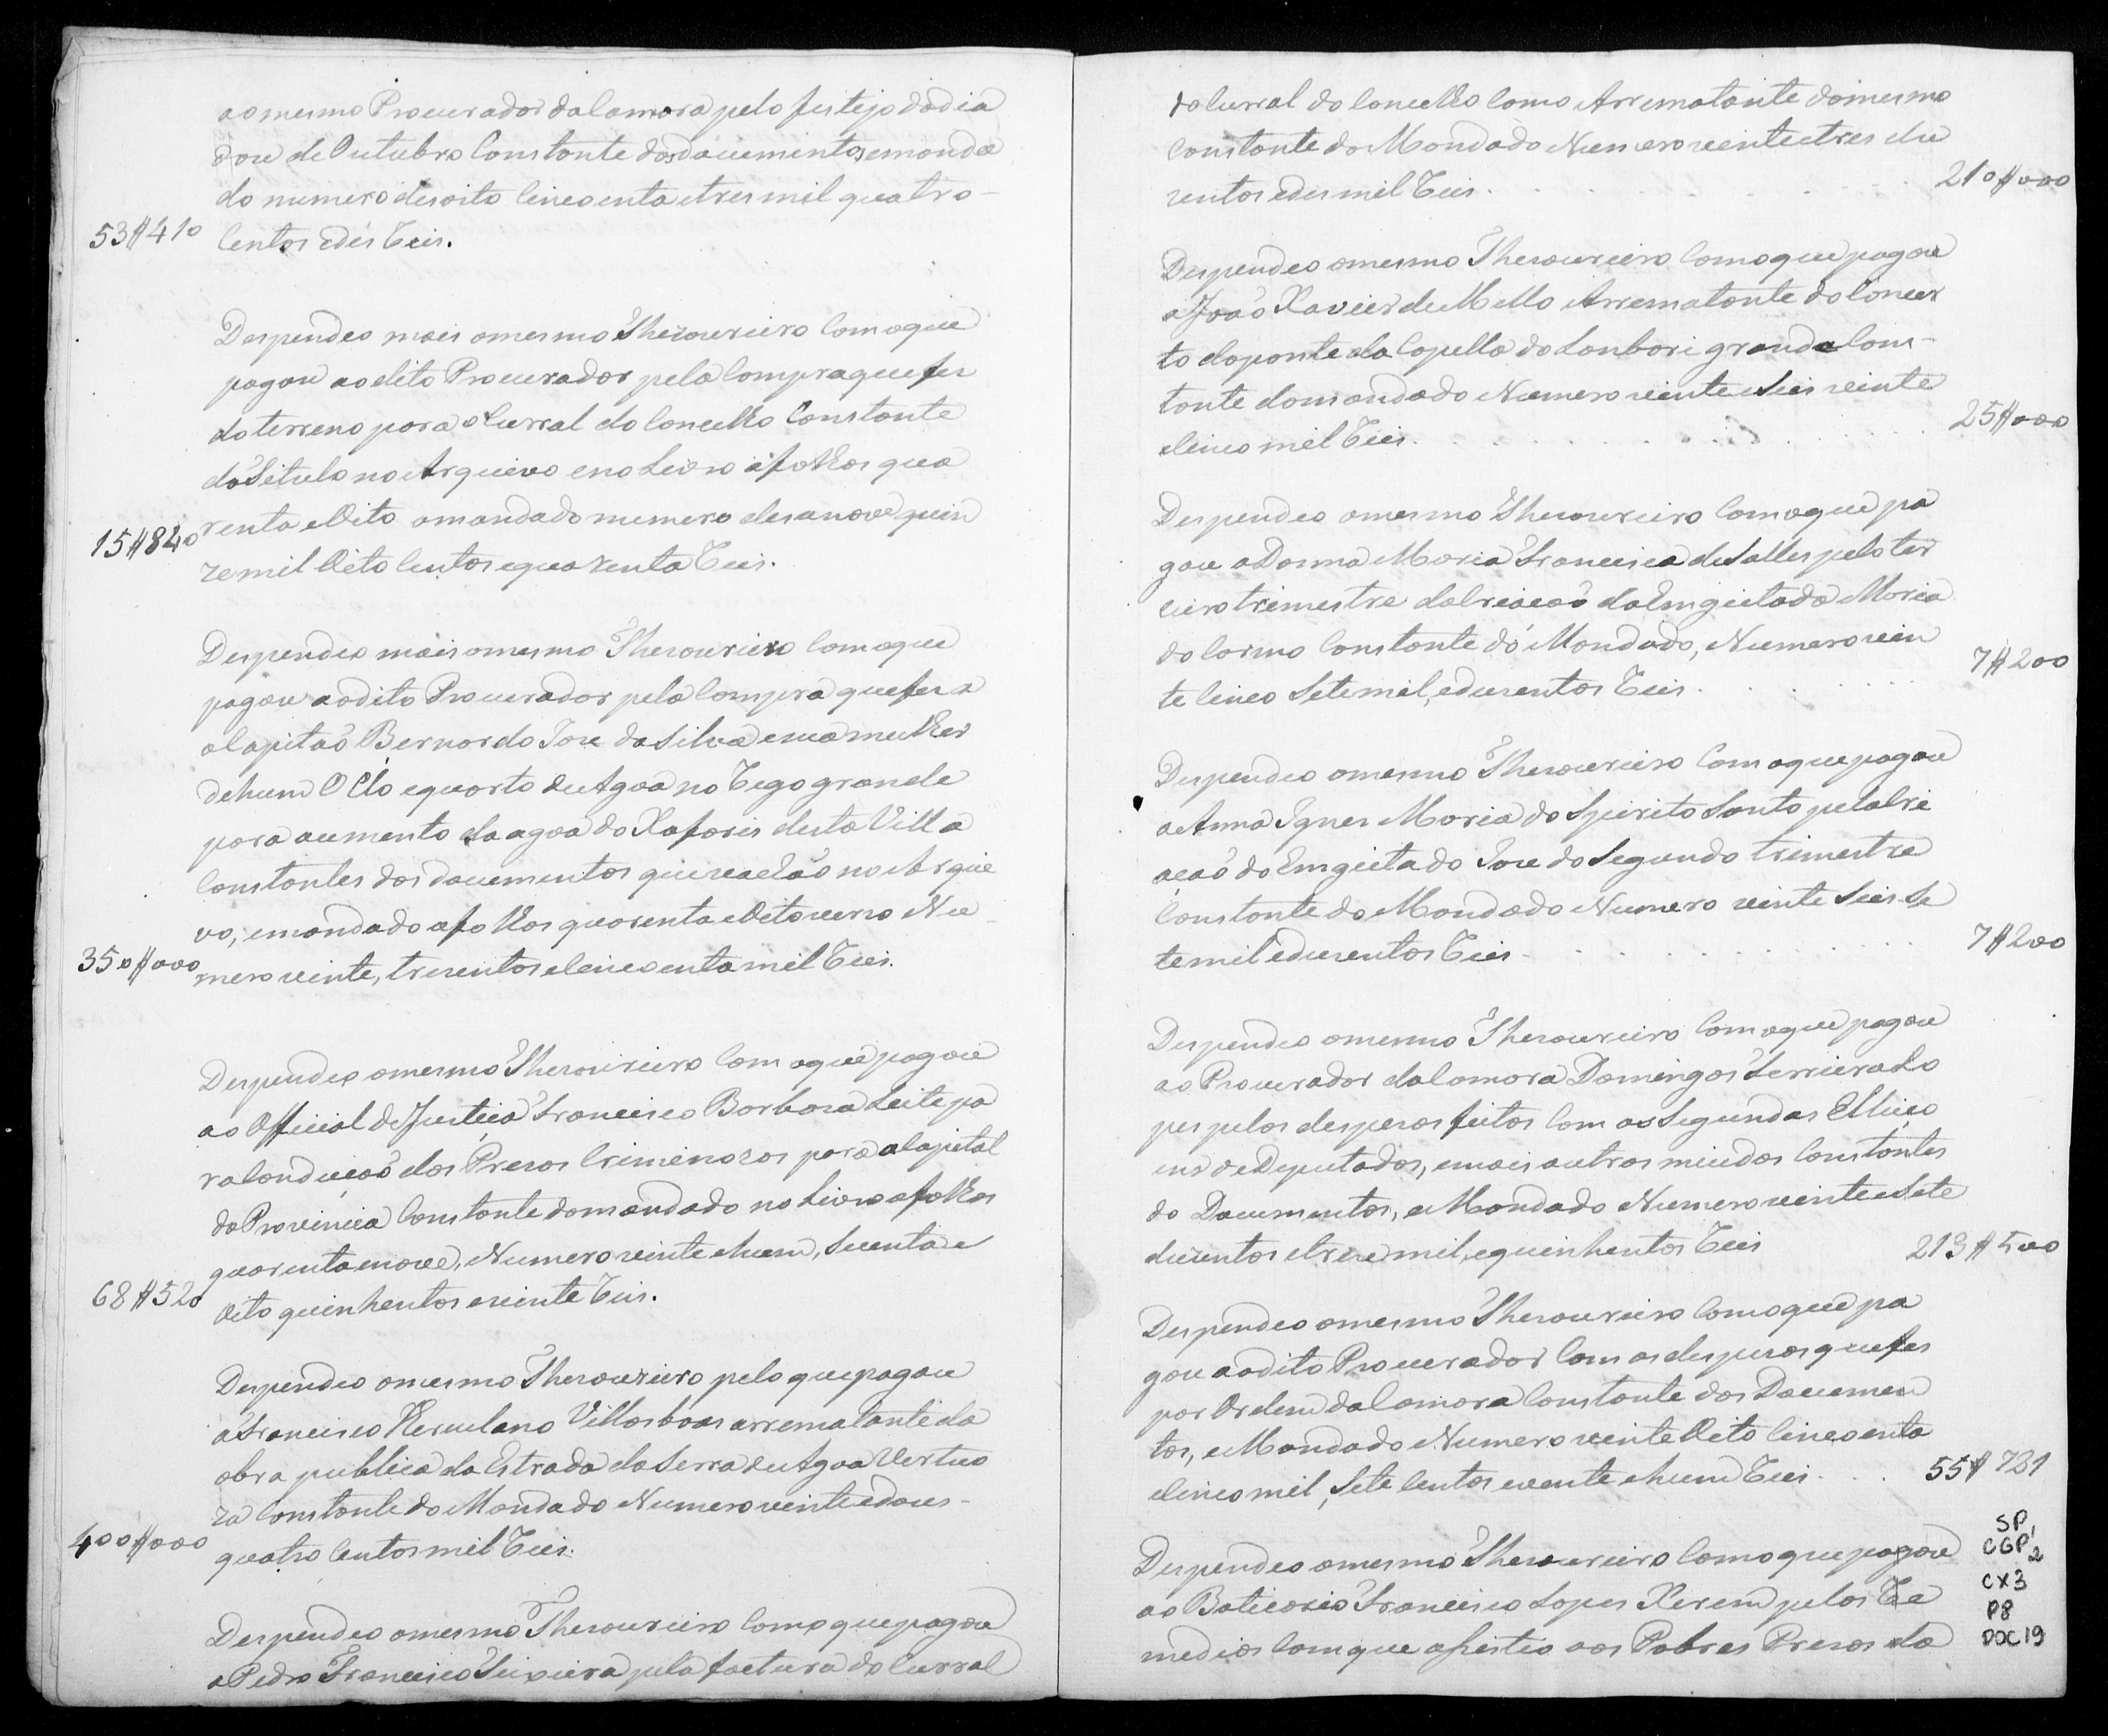 ao mesmo Procurador da Camara pelo festejo do dia
doze de Outubro Constante dos documentos e manda
do numero desoito Cincoenta e tres mil quatro-
53$410 Centos e dés Reis.
Despendeo mais o mesmo Thezoureiro Com o que
pagou ao dito Procurador pela Compra que fes
do terreno para o Curral do Concelho Constante
do Titulo no Arquivo e no Livro a folhas qua
renta e Oito o mandado numero desanove quin
15$840 ze mil Oito Centos e quarenta Reis.
Despendeo mais o mesmo Thezoureiro Com o que
pagou ao dito Procurador pela Compra que fes a
o Capitaõ Bernardo Joze da Silva e sua mulher
de hum Olho e quarto de Agoa no Rego grande
para aumento da agoa do Xafaris desta Villa
Constantes dos documentos que se achaõ no Arqui
vo, e mandado a folhas quarenta e Oito verso Nu
350$000 mero vinte, trezentos e cincoenta mil Reis.
Despendeo o mesmo Thezoureiro Com o que pagou
ao Official de Justiça Francisco Barboza Leite pa
ra Conduçaõ dos Prezos Criminozos para a Capital
da Provincia Constante do mandado no Livro a folhas
quarenta e nove, Numero vinte e hum, Secenta e
68$520 Oito quinhentos e vinte Reis.
Despendeo o mesmo Thezoureiro pelo que pagou
a Francisco Herculano Villasboas arrematante da
obra publica da Estrada da Serra de Agoa Vertuo
za Constante do Mandado Numero vinte e dous-
400$000 quatro Centos mil Reis.
Despendeo o mesmo Thezoureiro Com o que pagou
a Pedro Francisco Teixeira pela factura do Curral
do Curral do Concelho Como Arrematante do mesmo
Constante do Mandado Numero vinte e tres du
zentos e des mil Reis. 210$000
Despendeo o mesmo Thezoureiro Com o que pagou
a Joaõ Xavier de Mello Arrematante do Concer
to da ponte da Capella do Lanbari grande Cons-
tante do mandado Numero vinte e Seis vinte
e Cinco mil Reis. 25$000
Despendeo o mesmo Thezoureiro Com o que pa
gou a Donna Maria Francisca de Salles pelo ter
ceiro trimestre da Criaçaõ da Emgeitada Maria
do Carmo Constante do Mandado, Numero vin
te Cinco Sete mil, e duzentos Reis. 7$200
Despendeo o mesmo Thezoureiro Com o que pagou
a Anna Ignes Maria do Spirito Santo pela Cri
açaõ do Emgeitado Joze do Segundo trimestre
Constante do Mandado Numero vinte Seis Se
te mil e duzentos Reis 7$200
Despendeo o mesmo Thezoureiro Com o que pagou
ao Procurador da Camara Domingos Ferreira Lo
pes pelos despezas feitas Com as Segundas Elleiço
ens de Deputados, e mais outras miudas Constantes
do Documentos, e Mandado Numero vinte e Sete
duzentos e treze mil, e quinhentos Reis 213$500
Despendeo o mesmo Thezoureiro Com o que pa
gou ao dito Procurador Com as despezas que fes
por Ordem da Camara Constante dos Documen
tos, e Mandado Numero vinte Oito Cincoenta
e Cinco mil, Sete Centos e vente e hum Reis 55$721
Despendeo o mesmo Thezoureiro Com o que pagou
ao Boticario Francisco Lopes Xerem pelos Re
medios Com que asistio aos Pobres Prezos da
SP1
CGP2
CX3
P8
DOC19